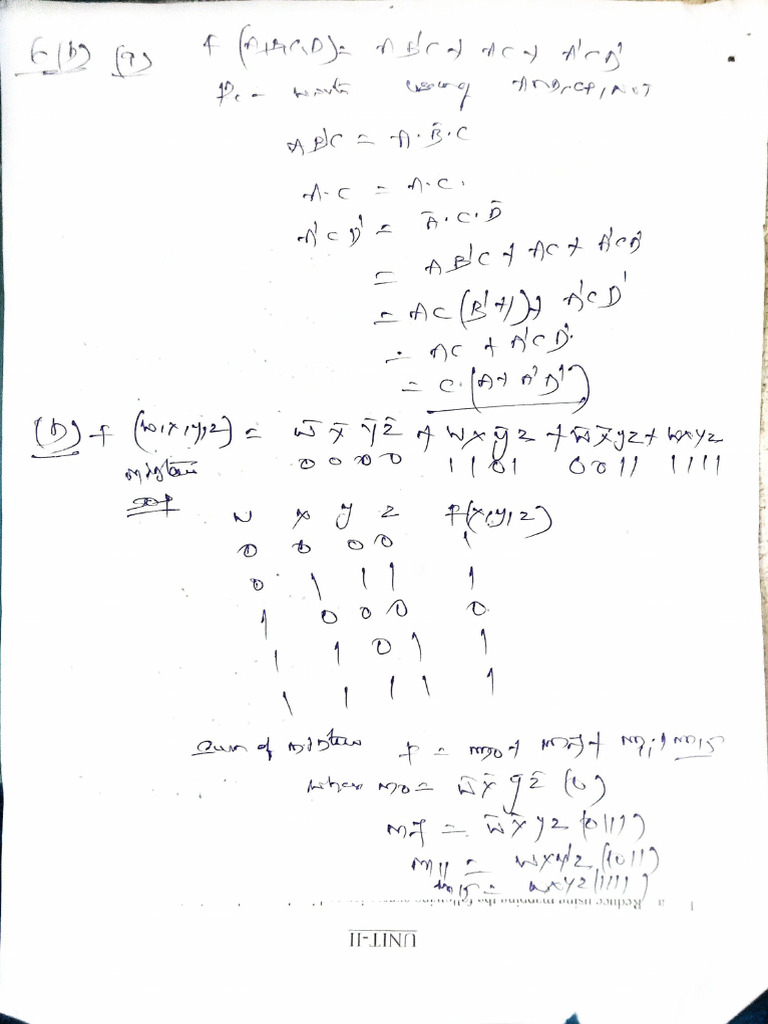 (b) (a) F (A,B,C,D) = AB'C + AC + A'CD'
using AND, OR, NOT
AB'C = A·B̄·C
A·C = A·C.
A'CD' = Ā·C·D̄
= AB'C + AC + A'CD'
= AC (B'+1) + A'CD'
= AC + A'CD'.
= C·(A + A'D')
(b) F (w,x,y,z) = w̄ x̄ ȳ z̄ + w x ȳ z + w̄ x̄ y z + w x y z
minterm 0 0 0 0 1 1 0 1 0 0 1 1 1 1 1 1
SOP
w x y z F(x,y,z)
0 0 0 0 1
0 1 1 1 1
1 0 0 0 0
1 1 0 1 1
1 1 1 1 1
Sum of minterm F = m0 + m7 + m11 + m15
where m0 = w̄ x̄ ȳ z̄ (0)
m7 = w̄ x̄ y z (0111)
m11 = w x y' z (1011)
m15 = w x y z (1111)
1 a Reduce using mapping the following
UNIT-II